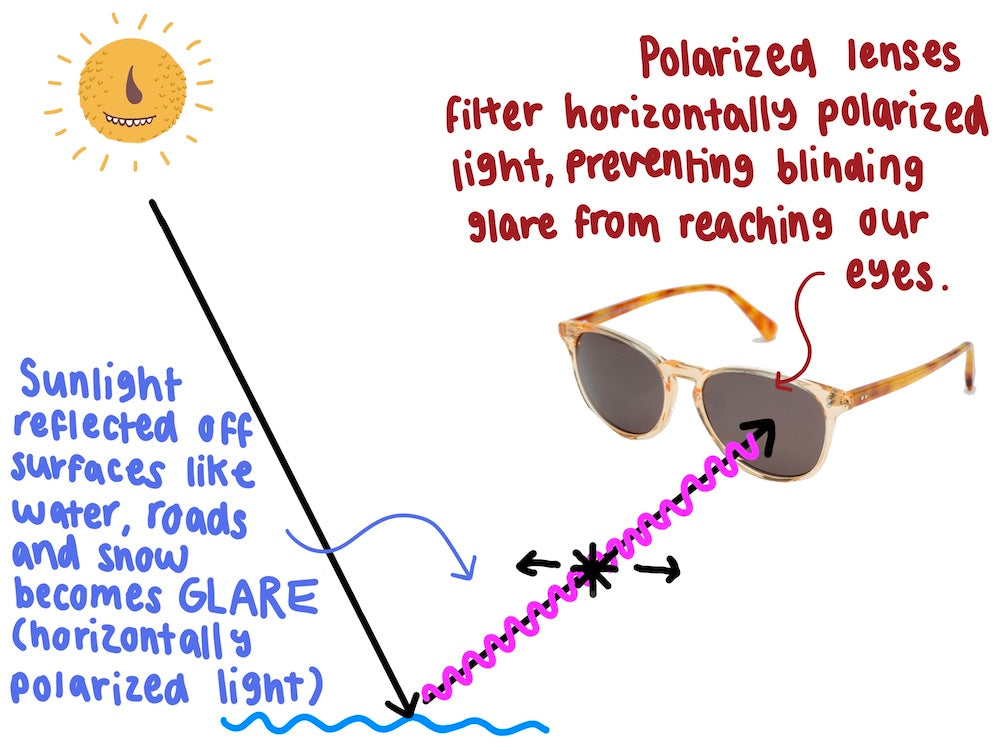 Polarized lenses
filter horizontally polarized
light, preventing blinding
glare from reaching our
eyes.
Sunlight
reflected off
surfaces like
water, roads
and snow
becomes GLARE
(horizontally
polarized light)